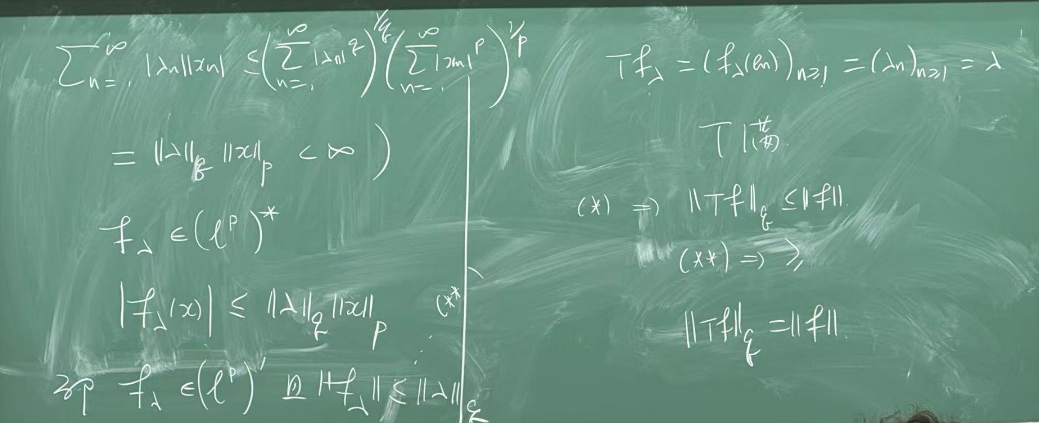 ∑_{n=1}^{∞} |λn||xn| ≤ (∑_{n=1}^{∞} |λn|^q)^{1/q} (∑_{n=1}^{∞} |xn|^p)^{1/p}
= ||λ||_q ||x||_p < ∞ )
f_λ ∈ (ℓ^p)^*
|f_λ(x)| ≤ ||λ||_q ||x||_p (**
f_λ ∈ (ℓ^p)' ||f_λ|| ≤ ||λ||_q
T f_λ = (f_λ(en))_{n≥1} = (λn)_{n≥1} = λ
T
(*) ⇒ ||Tf||_q ≤ ||f||.
(**) ⇒ ≥
||Tf||_q = ||f||.